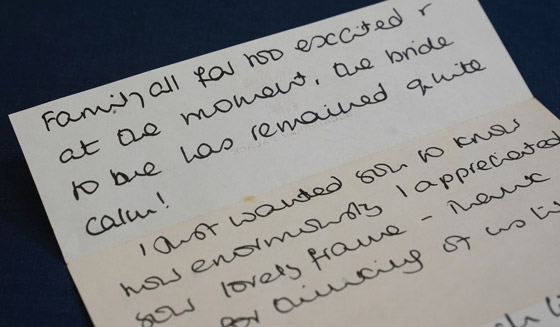 Family all far too excited r
at the moment, the bride
to be has remained quite
calm!
I just wanted you to know
how enormously I appreciated
your lovely frame - thank
for thinking of us